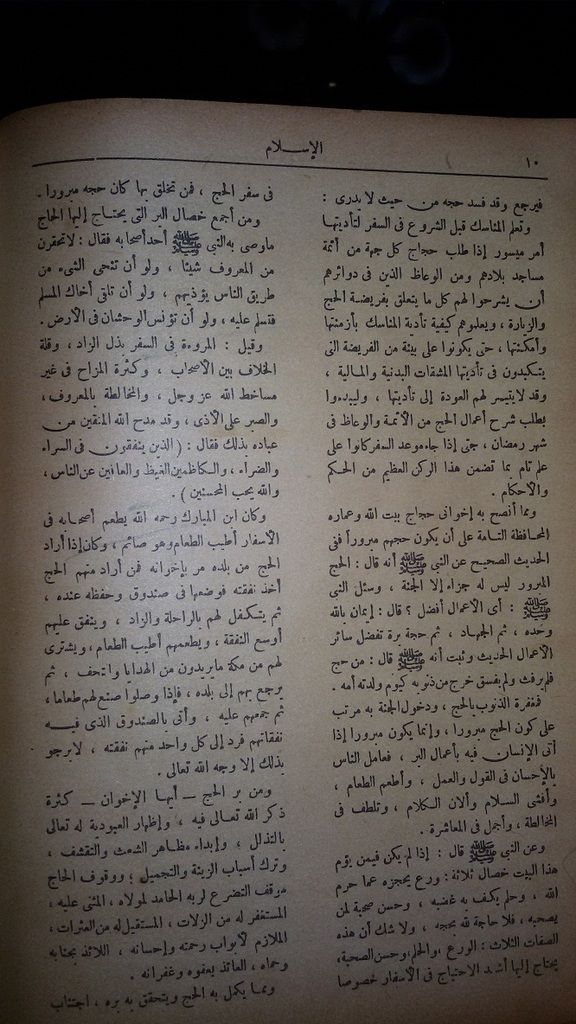 ١٠
الإسلام
فيرجع وقد فسد حجه من حيث لا يدرى :
وتعلم المناسك قبل الشروع فى السفر لتأديتها
أمر ميسور إذا طلب حجاج كل جهة من أئمة
مساجد بلادهم ومن الوعاظ الذين فى دوائرهم
أن يشرحوا لهم كل ما يتعلق بفريضة الحج
والزيارة ، ويعلموهم كيفية تأدية المناسك بأزمنتها
وأمكنتها ، حتى يكونوا على بينة من الفريضة التى
يتكبدون فى تأديتها المشقات البدنية والمالية ،
وقد لا يتيسر لهم العودة إلى تأديتها ، وليبدءوا
بطلب شرح أعمال الحج من الأئمة والوعاظ فى
شهر رمضان ، حتى إذا جاء موعد السفر كانوا على
علم تام بما تضمن هذا الركن العظيم من الحكم
والأحكام .
ومما أنصح به إخوانى حجاج بيت الله وعماره
المحافظة التامة على أن يكون حجهم مبروراً ففى
الحديث الصحيح عن النبي ﷺ أنه قال : الحج
المبرور ليس له جزاء إلا الجنة ، وسئل النبى
ﷺ : أى الأعمال أفضل ؟ قال : إيمان بالله
وحده ، ثم الجهاد ، ثم حجة برة تفضل سائر
الأعمال الحديث وثبت أنه ﷺ قال : من حج
فلم يرفث ولم يفسق خرج من ذنوبه كيوم ولدته أمه .
فمغفرة الذنوب بالحج ، ودخول الجنة به مرتب
على كون الحج مبرورا ، وإنما يكون مبرورا إذا
أتى الإنسان فيه بأعمال البر ، فعامل الناس
بالإحسان فى القول والعمل ، وأطعم الطعام ،
وأفشى السلام وألان الكلام ، وتلطف فى
المخالطة ، وأجمل فى المعاشرة .
وعن النبي ﷺ قال : إذا لم يكن فيمن يؤم
هذا البيت خصال ثلاثة : ورع يحجزه عما حرم
الله ، وحلم يكف به غضبه ، وحسن صحبة لمن
يصحبه ، فلا حاجة لله بحجه ، ولا شك أن هذه
الصفات الثلاث : الورع ، والحلم ، وحسن الصحبة ،
يحتاج إليها أشد الاحتياج فى الأسفار خصوصا
فى سفر الحج ، فمن تخلق بها كان حجه مبرورا .
ومن أجمع خصال البر التى يحتاج إليها الحاج
ماوصى به النبي ﷺ أحد أصحابه فقال : لا تحقرن
من المعروف شيئا ، ولو أن تنحى الشىء من
طريق الناس يؤذيهم ، ولو أن تلقى أخاك المسلم
فتسلم عليه ، ولو أن تؤنس الوحشان فى الأرض .
وقيل : المروءة فى السفر بذل الزاد ، وقلة
الخلاف بين الأصحاب ، وكثرة المزاح فى غير
مساخط الله عز وجل ، والمخالطة بالمعروف ،
والصبر على الأذى ، وقد مدح الله المتقين من
عباده بذلك فقال : ( الذين ينفقون فى السراء
والضراء ، والكاظمين الغيظ والعافين عن الناس ،
والله يحب المحسنين ) .
وكان ابن المبارك رحمه الله يطعم أصحابه فى
الأسفار أطيب الطعام وهو صائم ، وكان إذا أراد
الحج من بلده مر بإخوانه فمن أراد منهم الحج
أخذ نفقته فوضعها فى صندوق وحفظه عنده ،
ثم يتكفل لهم بالراحلة والزاد ، وينفق عليهم
أوسع النفقة ، ويطعمهم أطيب الطعام ، ويشترى
لهم من مكة ما يريدون من الهدايا والتحف ، ثم
يرجع بهم إلى بلده ، فإذا وصلوا صنع لهم طعاما ،
ثم جمعهم عليه ، وأتى بالصندوق الذى فيه
نفقاتهم فرد إلى كل واحد منهم نفقته ، لا يرجو
بذلك إلا وجه الله تعالى .
ومن بر الحج — أيها الإخوان — كثرة
ذكر الله تعالى فيه ، وإظهار العبودية له تعالى
بالتذلل ، وإبداء مظاهر الشعث والتقشف ،
وترك أسباب الزينة والتجميل ؛ ووقوف الحاج
موقف التضرع لربه الحامد لمولاه ، المثنى عليه ،
المستغفر له من الزلات ، المستقيل له من العثرات ،
الملازم لأبواب رحمته وإحسانه ، اللائذ بجنابه
وحماه ، العائذ بعفوه وغفرانه .
ومما يكمل به الحج ويتحقق به بره ، اجتناب